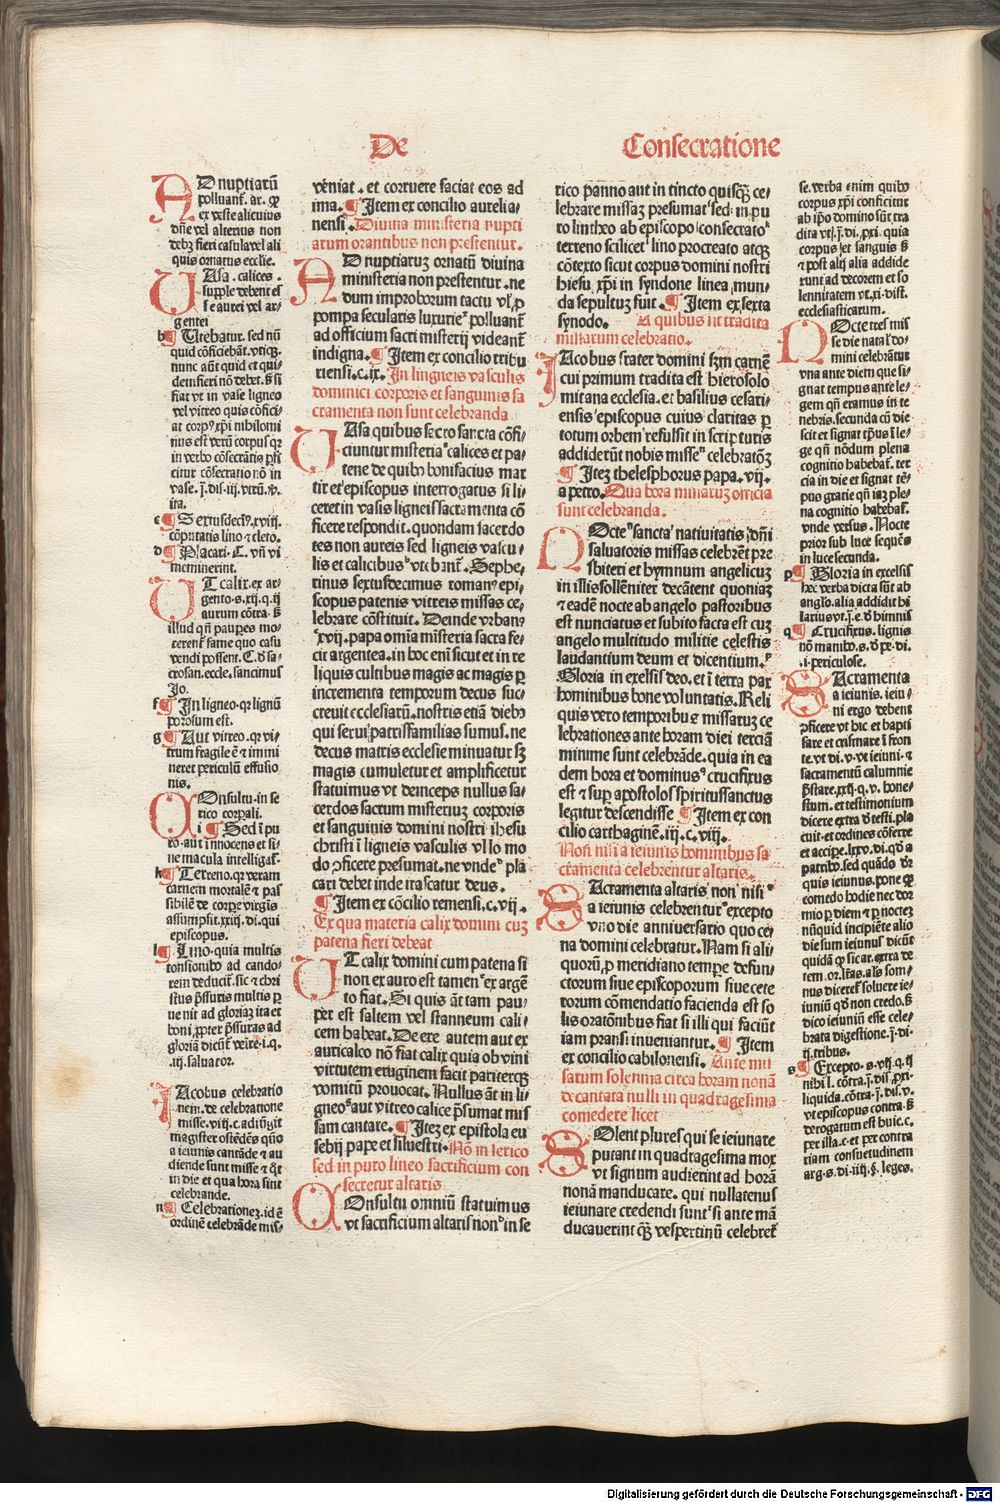 De
Consecratione
AD nuptiarũ
polluant̃. ar. ꝙ
ex veste alicuius
dñe vel alterius non
debȝ fieri casula vel ali
quis ornatus ecclie.
VAsa. calices.
supple debent es
se aurei vel ar⸗
gentei
b ¶ Utebatur. sed nũ
quid cõficiebãt. vtiqȝ.
nunc aũt quid et qui⸗
dem fieri nõ debet. ß si
fiat vt in vase ligneo
vel vitreo quis cõfici⸗
at corpꝰ xp̃i nibilomi
nus est verũ corpus qr
in verbo cõsecratis
citur cõsecratio nõ in
ita.
c ¶ Sextusdecĩꝰ. xviij.
cõputatis lino et cleto.
d ¶ Placari. C. vñ vi
meminerint.
UT calix. ex ar⸗
gento. s. xij. q. ij
aurum cõtra. ß
illud qñ pauperes mo⸗
rerent̃ fame quo casu
vendi possent. C. d̃ sa⸗
crosan. eccle. sancimus
Jo.
f ¶ In ligneo. qr lignũ
porosum est.
g ¶ Aut vitreo. qr vi⸗
trum fragile ẽ ⁊ immi
neret periculũ effusio
nis.
COnsultu. in se
rico corpali.
i ¶ Sed ĩ pu
ro. aut ĩnocens et si⸗
ne macula intelligat̃.
k ¶ Terreno. qr veram
carnem mortalẽ ⁊ pas
sibilẽ de corpe virgĩs
assumpsit. xxiij. di. qui
episcopus.
l ¶ Lino. quia multis
tonsionibꝰ ad cando⸗
rem deducit̃. sic ⁊ chri
stus p̃ssuris multis p
uenit ad gloriaȝ ita et
boni ꝓpter p̃ssuras ad
gloriã
.iij. saluator.
IAcobus celebratio
nem. de celebratione
misse. viij. c. adiũgit
magister ostẽdẽs quo
a ieiunis cantãde ⁊ au
diende sunt misse ⁊ q̃t
in die et qua hora sint
celebrande.
n ¶ Celebrationeȝ. id ẽ
ordinẽ celebrãde mis⸗
vẽniat. et corruere faciat eos ad
ima. ¶ Item ex concilio aurelia⸗
nensi. Diuina ministeria nupti
arum orantibus non prestentur.
AD nuptiaruȝ ornatũ diuina
ministeria non prestentur. ne
dum improborum tactu vl̃. ꝓ
pompa secularis luxurie polluant̃
ad officium sacri misterij videant̃
indigna. ¶ Item ex concilio tribu
riensi. c. ix. In ligneis vasculis
dominici corporis et sanguinis sa
cramenta non sunt celebranda
VAsa quibus sacro sancta cõfi⸗
ciuntur misteria calices et pa⸗
tene de quibꝰ bonifacius mar
tir et episcopus interrogatus si li⸗
ceret in vasis ligneis sacramenta cõ
ficere respondit. quondam sacerdo
tes non aureis sed ligneis vascu⸗
lis et calicibus vtebant̃. Sephe⸗
rinus sextusdecimus romanꝰ epi⸗
scopus patenis vitreis missas ce⸗
lebrare cõstituit. Deinde vrbanꝰ
xvij. papa omĩa mĩsteria sacra fe⸗
cit argentea. in hoc eni sicut et in re
liquis cultibus magis ac magis per
incrementa temporum decus suc⸗
creuit ecclesiarũ. nostris etiã diebꝰ
qui serui patrisfamilias sumus. ne
decus matris ecclesie minuatur sȝ
magis cumuletur et amplificetur
statuimus vt deinceps nullus sa⸗
cerdos sacrum misteriuȝ corporis
et sanguinis domini nostri ihesu
christi ĩ ligneis vasculis vllo mo
do ꝓficere presumat. ne vnde pla
cari debet inde irascatur deus.
¶ Item ex cõcilio remensi. c. vij.
Ex qua materia calix domini cuȝ
patena fieri debeat
UT calix domini cum patena si
non ex auro est tamen ex argẽ
to fiat. Si quis aũt tam pau⸗
per est saltem vel stanneum cali⸗
cem habeat. De ere autem aut ex
auricalco nõ fiat calix quia ob vini
virtutem eruginem facit pariterqȝ
vomitũ prouocat. Nullus aũt in li⸗
gneo aut vitreo calice p̃sumat mis
sam cantare. ¶ Iteȝ ex epistola eu
sebij pape et siluestri. Nõ in serico
sed in puro lineo sacrificium con
secretur altaris
COnsultu omniũ statuimus
vt sacrificium altaris non in se
rico panno aut in tincto quisqȝ ce⸗
lebrare missaȝ presumat sed in pu
ro lintheo ab episcopo consecrato
terreno scilicet lino procreato atqȝ
cõtexto sicut corpus domini nostri
hiesu xp̃i in syndone linea mun⸗
da sepultuȝ fuit. ¶ Item ex sexta
synodo. A quibus sit tradita
missarum celebratio.
IAcobus frater domini sm̃ carnẽ
cui primum tradita est hierosolo
mitana ecclesia. et basilius cesari⸗
ensis episcopus cuius claritas p
totum orbem refulsit in scripturis
addiderũt nobis misse celebratõȝ
¶ Iteȝ thelesphorus papa. vij.
a petro. Qua hora missaruȝ officia
sunt celebranda.
NOcte sancta natiuitatis dñi
saluatoris missas celebrẽt pre
sbiteri et hymnum angelicuȝ
in illis sollẽniter decãtent quoniaȝ
⁊ eadẽ nocte ab angelo pastoribus
est nunciatus et subito facta est cuȝ
angelo multitudo militie celestis
laudantium deum et dicentium.
Gloria in exelsis deo. et ĩ terra pax
hominibus bone voluntatis. Reli
quis vero temporibus missaruȝ ce
lebrationes ante horam diei terciã
minime sunt celebrãde. quia in ea
dem hora et dominus crucifixus
est ⁊ sup apostolos spiritussanctus
legitur descendisse ¶ Item ex con
cilio carthaginẽ. iij. c. viij.
Non nisi a ieiunis hominibus sa
cramenta celebrentur altaris.
SAcramenta altaris non nisi
a ieiunis celebrentur excepto
vno die anniuersario quo ce⸗
na domini celebratur. Nam si ali⸗
quorũ ꝓ meridiano tempe defun⸗
ctorum siue episcoporum siue cete
rorum cõmendatio facienda est so
lis oratõnibus fiat si illi qui faciũt
iam pransi inueniantur. ¶ Item
ex concilio cabilonensi. Ante mis
sarum solennia circa horam nonã
decantata nulli in quadragesima
comedere licet
SOlent plures qui se ieiunare
putant in quadragesima mox
vt signum audierint ad horã
nonã manducare. qui nullatenus
ieiunare credendi sunt si ante mã
ducauerint qȝ vespertinũ celebret̃
se. verba enim quibꝰ
corpus xp̃i conficitur
ab ip̃o domino sũt tra
dita vt. j. di. pxi. quia
corpus et sanguis ß
⁊ post alij alia addide
runt ad decorem et so
lennitatem vt. xi. dist.
ecclesiasticarum.
NOcte tres mis
se die natal dõ⸗
mini celebrãtur
vna ante diem que si⸗
gnat tempus ante le⸗
gem qñ eramus in te
nebris. secunda cũ die
scit et signat tp̃us ĩ le⸗
ge qñ nõdum plena
cognitio habebat̃. ter
cia in die et signat tẽ⸗
pus gratie qñ iaȝ ple⸗
na cognitio habebat̃.
vnde versus. Nocte
prior sub luce sequẽs
in luce secunda.
p ¶ Gloria in excelsis
hec verba dicta sũt ab
anglo. alia addidit hi
larius vt. j. e. d̃ himnis
q ¶ Crucifixus. lignis
nõ manibꝰ. s. d̃ pe. di.
.i. periculose.
SAcramenta
a ieiunis. ieiu⸗
ni ergo debent
ꝓficere vt hic et bapti
sare et crismare ĩ fron
te. vt di. v. vt ieiuni. ⁊
sacramentũ calumnie
p̃stare. xxij. q. v. hone⸗
stum. et testimonium
dicere extra d̃ testi. pla
cuit. et ordines cõferre
et accipe. lxxv. di. q̃ a
patribꝰ. sed quãdo d̃r
quis ieiunus. pone ꝙ
comedo hodie nec dor
mio p diem ⁊ p noctez
nũquid incipiẽte alio
die sum ieiunus dicũt
quidã ꝙ sic ar. extra de
tem. or. lr̃as. als som⸗
nus diceret̃ soluere ie⸗
iuniũ qd̃ non credo. ß
dico ieiuniũ esse cele⸗
brata digestione. j. di.
ij. tribus.
s ¶ Excepto. s. vij. q. ij
nihil. cõtra. j. dis. pxi.
liquida. cõtra. j. dis. v.
vt episcopus contra. ß
derogatum est huic. c.
per illa. c. et per contra
riam consuetudinem
arg. s. di. iiij. §. leges.
Digitalisierung gefördert durch die Deutsche Forschungsgemeinschaft - DFG